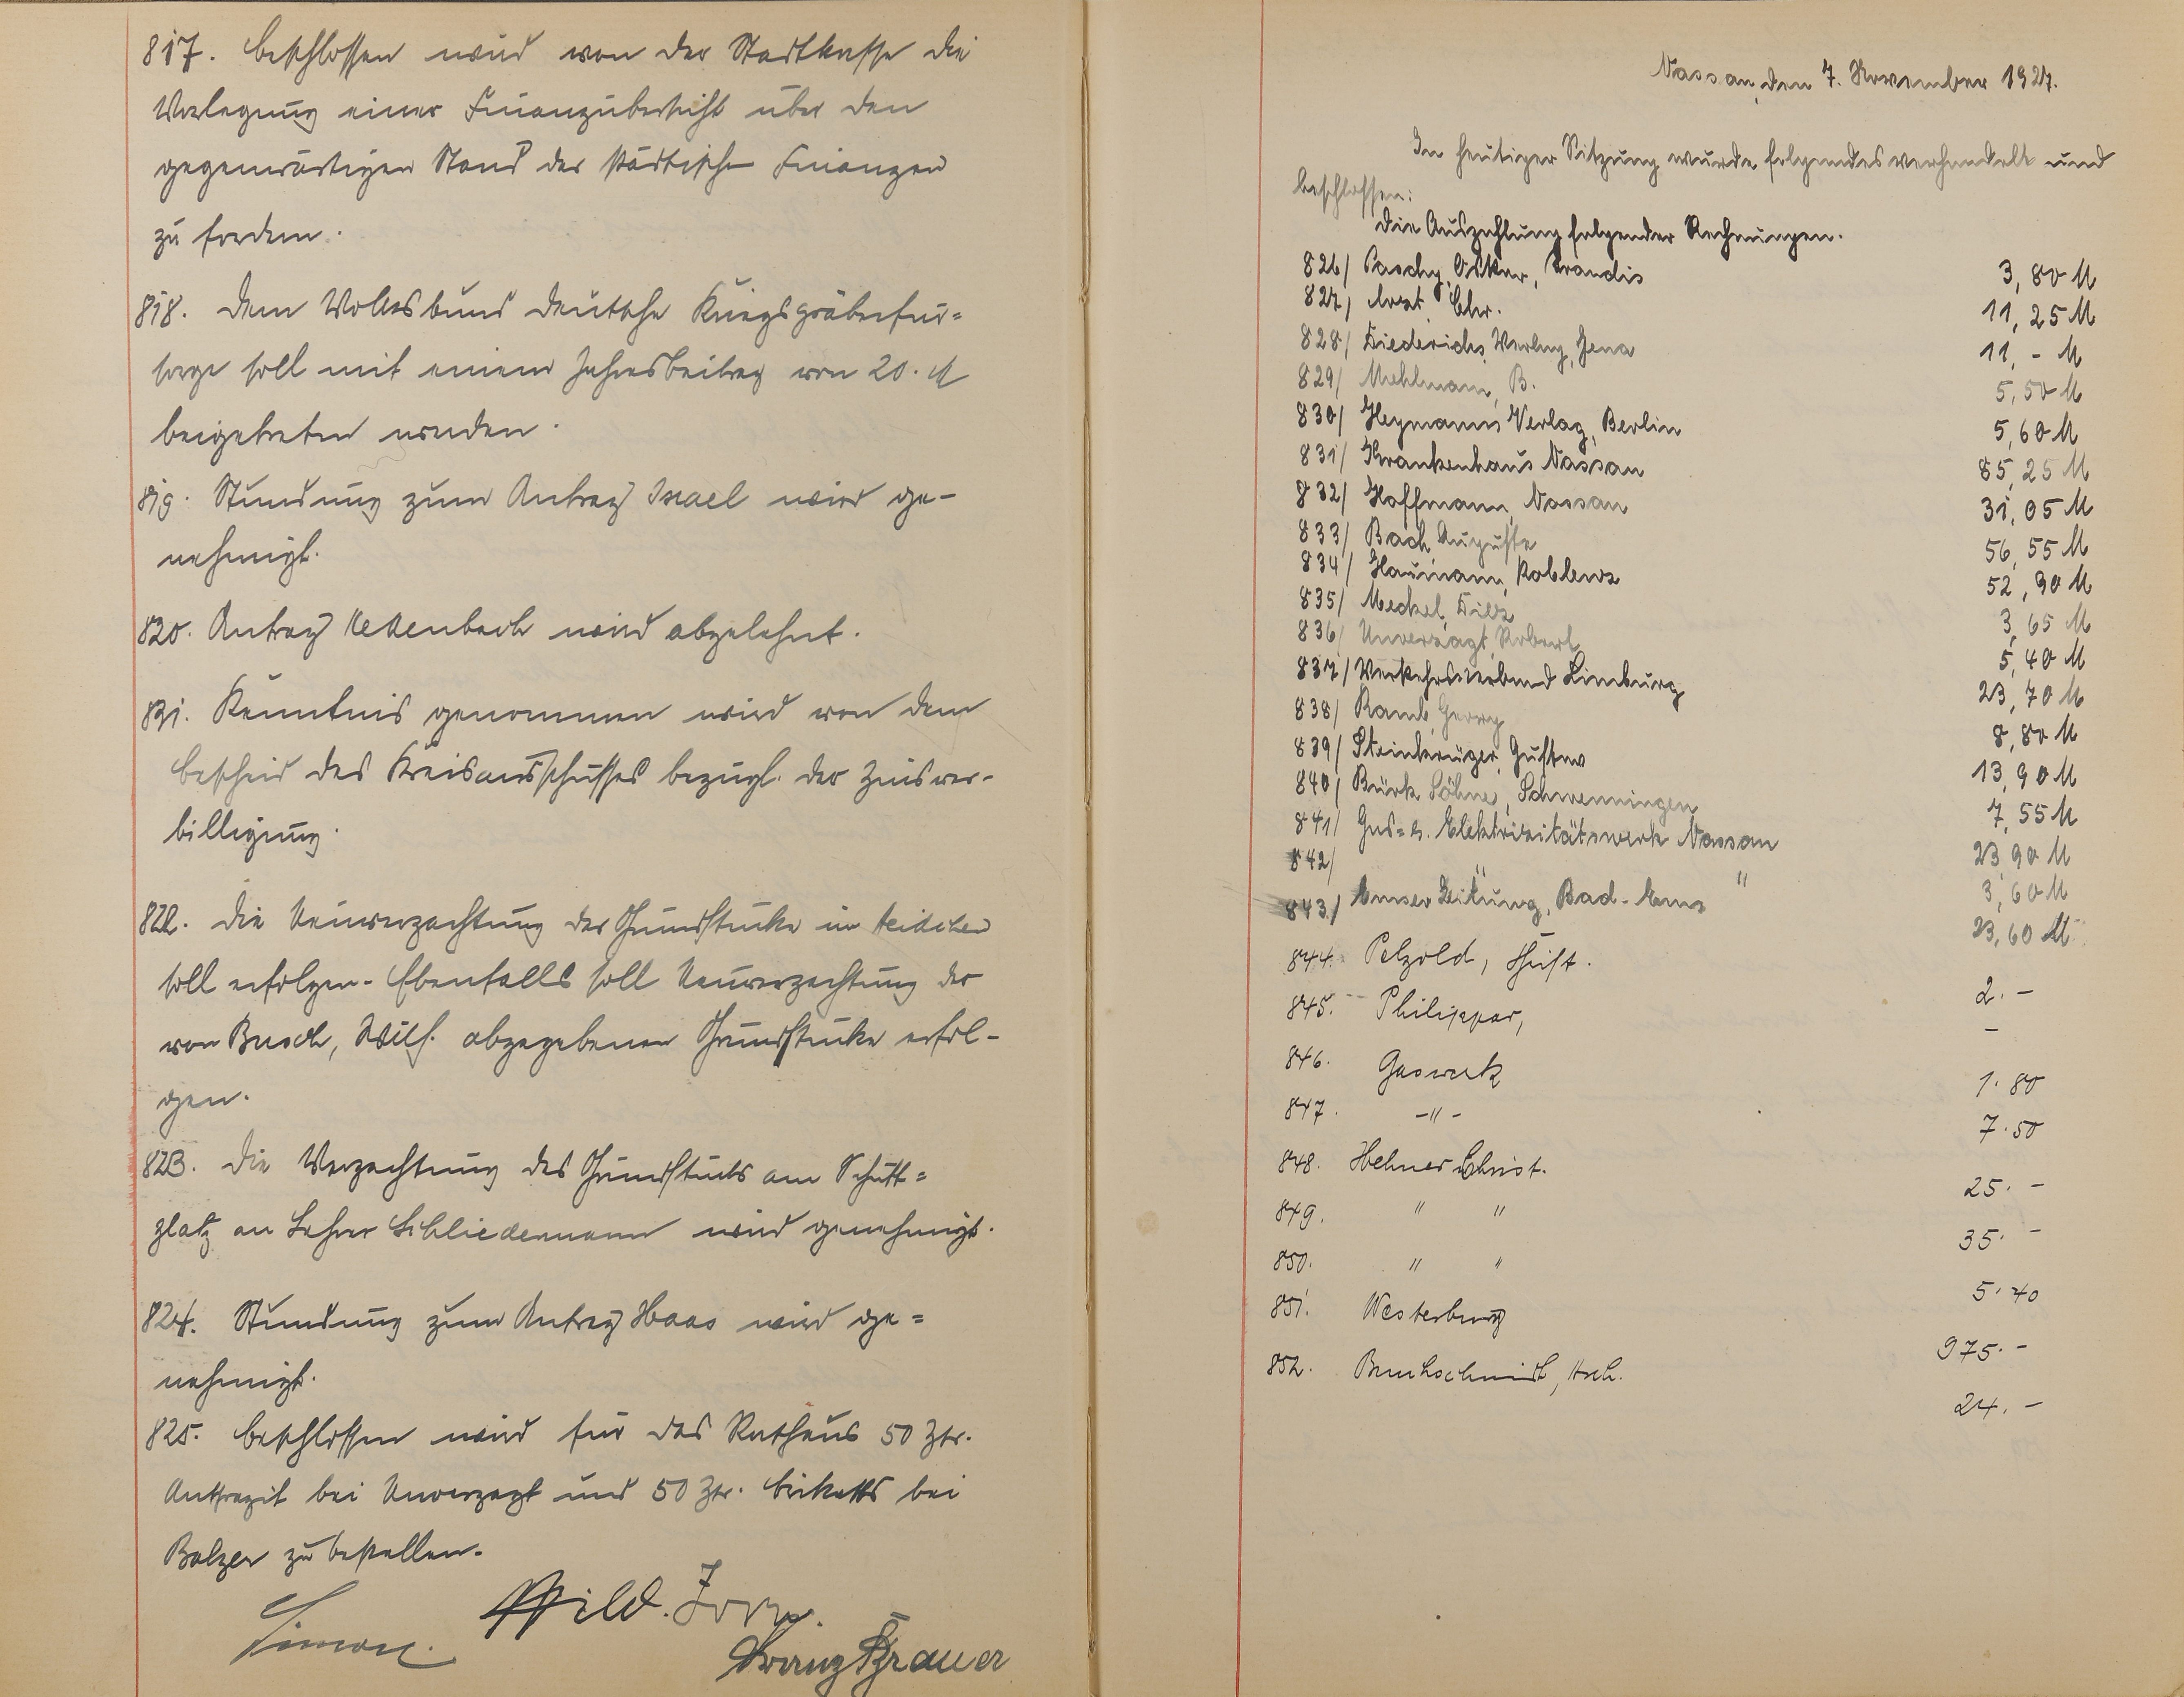 817. Beschlossen wird von der Stadtkasse die
Vorlegung einer Finanzübersicht über den
gegenwärtigen Stand der städtischen Finanzen
zu fordern.
818. Dem Volksbund deutsche Kriegsgräberfür-
sorge soll mit einem Jahresbeitrag von 20. M
beigetreten werden.
819. Stundung zum Antrag Israel wird ge-
nehmigt.
820. Antrag Kettenbach wird abgelehnt.
821. Kenntnis genommen wird von dem
Bescheid des Kreisausschusses bezügl. der Zinsver-
billigung.
822. Die Neuverpachtung der Grundstücke in
soll erfolgen. Ebenfalls soll Neuverpachtung der
von Busch, Wilh. abgegebenen Grundstücke erfol-
gen.
823. Die Verpachtung des Grundstücks am Schutt-
platz an Lehrer Schliedermann wird genehmigt.
824. Stundung zum Antrag Haas wird ge-
nehmigt.
825. Beschlossen wird für das Rathaus 50 Ztr.
Anthrazit bei Unverzagt und 50 Ztr. Briketts bei
Balzer zu bestellen.
Wild. Zorn.
Simon.
Franz Brauer
Nassau, den 7. November 1927.
In heutiger Sitzung wurde folgendes verhandelt und
beschlossen:
Die Auszahlung folgender Rechnungen.
826/ Paschy, Oskar, Brandis 3,80 M
827/ Arzt, Chr. 11,25 M
828/ Diederichs Verlag, Jena 11,- M
829/ Mehlmann, B. 5,50 M
830/ Heymanns Verlag, Berlin 5,60 M
831/ Krankenhaus Nassau 85,25 M
832/ Hoffmann, Nassau 31,05 M
833/ Bach, Auguste 56,55 M
834/ Haumann, Koblenz 52,90 M
835/ Meckel, Diez 3,65 M
836/ Unverzagt, Robert 5,40 M
837/ Verkehrsverband Limburg 23,70 M
838/ Raab, Georg 8,80 M
839/ Steinkrüger, Gustav 13,90 M
840/ Bürk Söhne, Schwenningen 7,55 M
841/ Gas- u. Elektrizitätswerk Nassau 23,90 M
842/ " " 3,60 M
843/ Emser Zeitung, Bad-Ems 23,60 M
844. Petzold, Schrift. 2.-
845. Philippar, -
846. Gaswerk 1.80
847. -"- 7.50
848. Hehner Christ. 25.-
849. " " 35.-
850. " " 5.40
851. Westerburg 975.-
852. Bruchschmidt, Hch. 24.-